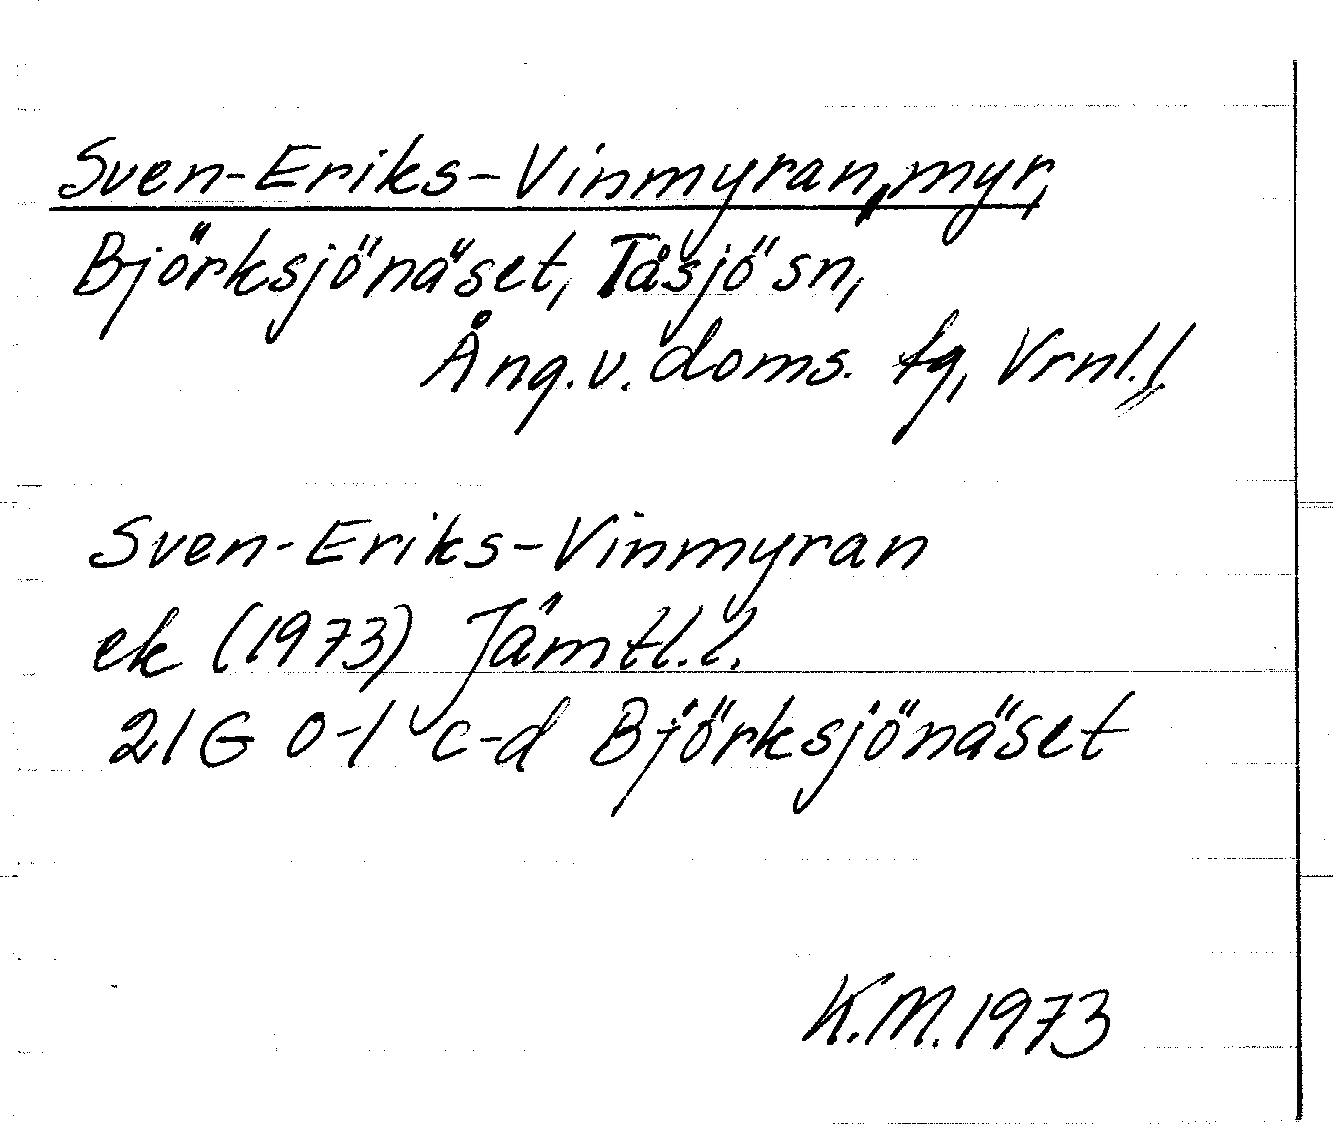 Sven-Eriks-Vinmyran, myr,
Björksjönäset, Tåsjö sn,
Ång. v. doms. tg, Vrnl. l.
Sven-Eriks-Vinmyran
ek (1973) Jämtl. l.
21G 0-1 c-d Björksjönäset
K.M. 1973